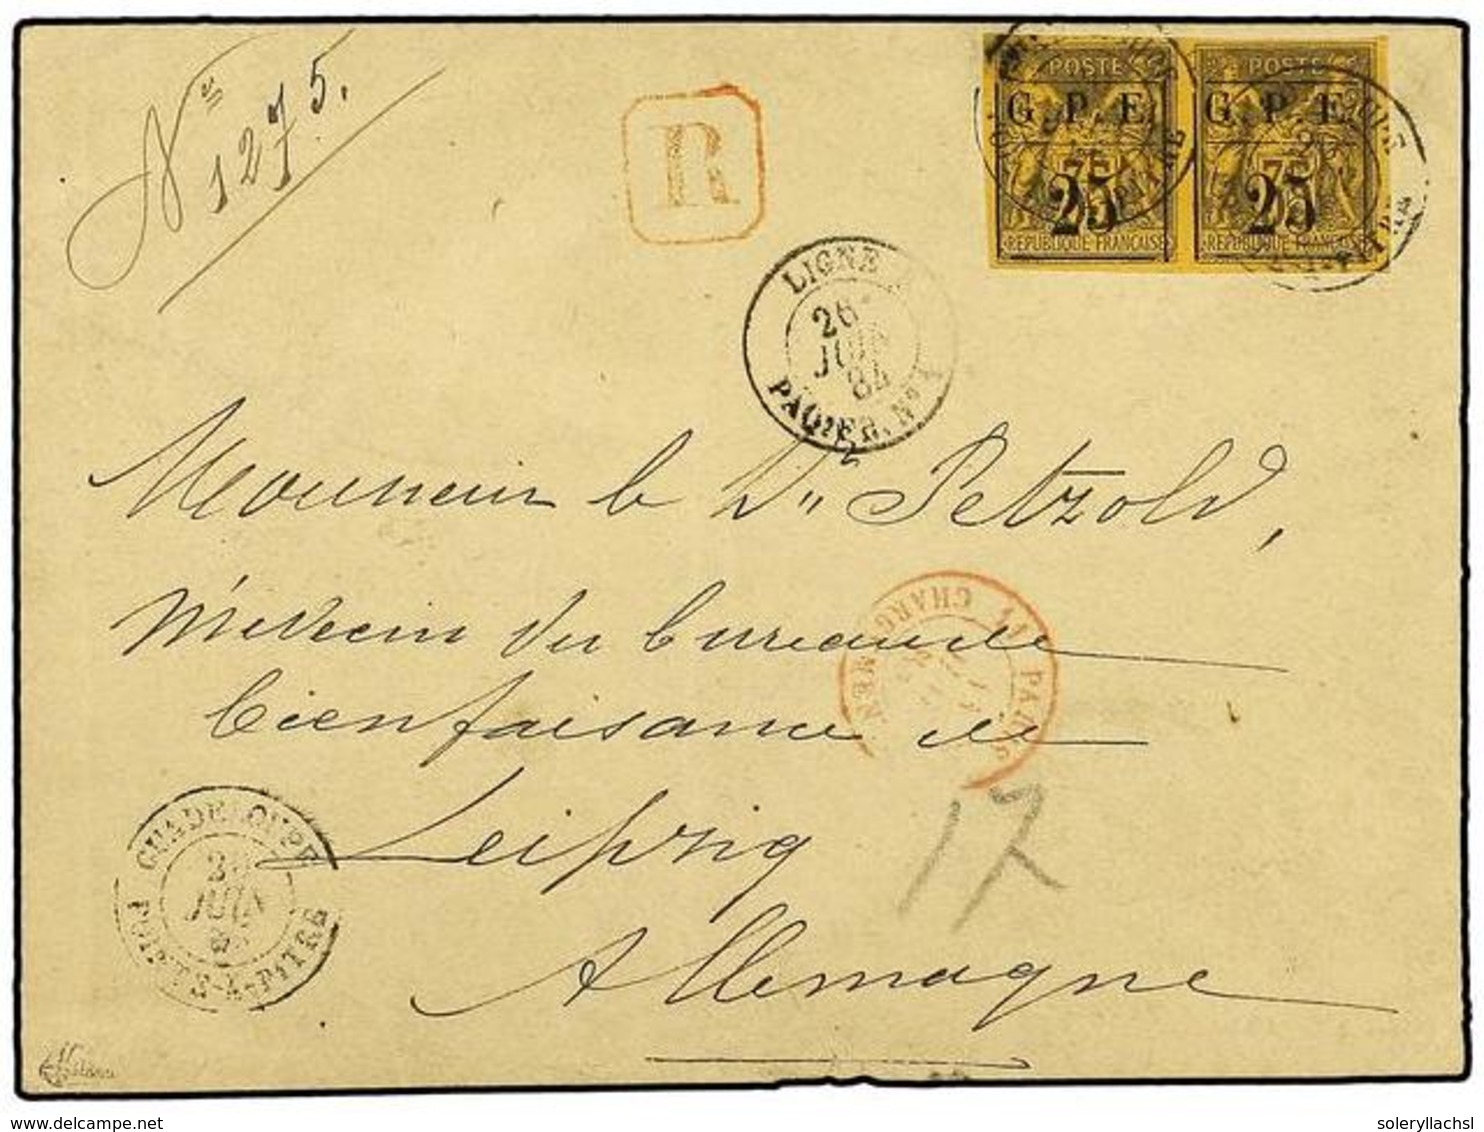 No 1275.
R
POSTES
G. P. E.
25
REPUBLIQUE FRANCAISE
POSTES
G. P. E.
25
REPUBLIQUE FRANCAISE
LIGNE
26
JUIN
84
PAQ. FR. No
2
Monsieur le Dr. Petzold,
Médecin du bureau de
bienfaisance de
Leipzig
Allemagne
PARIS
CHARGEMENT
17
GUADELOUPE
JUIN
POINTE-A-PITRE
soleryllachsl